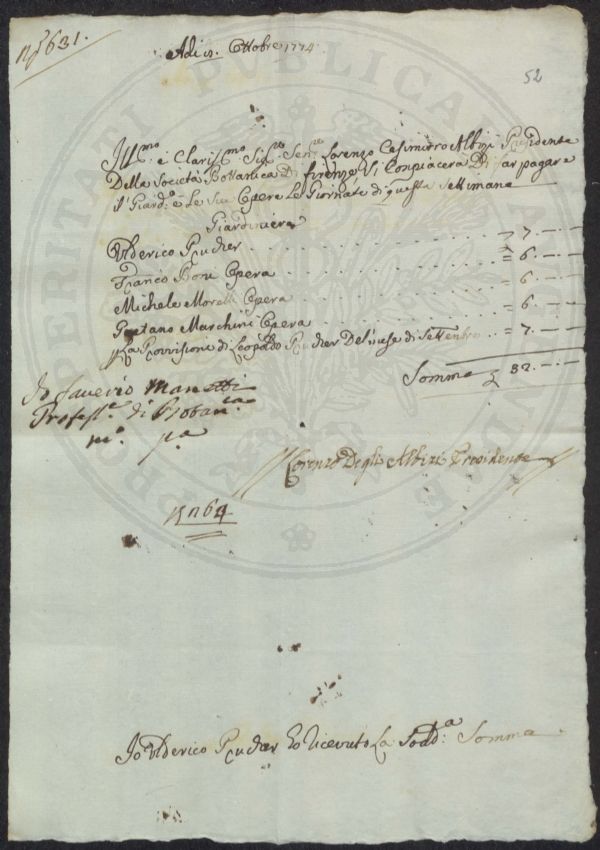 N° 631.
Adi 1. Ottobre 1774.
52
Ill.mo e Claris.mo Sig.re Sen.re Lorenzo Casimirro Albizi Presidente
Della Società Bottanica Di firenze Si Conpiacera Di far pagare
il Giard.e e Le Sue Opere Le Giornate di questa Settimana
Giardiniera
Ulderico Prucher = 7. — —
Franco Boni Opera = 6. — —
Michele Morelli Opera = 6. — —
Gaetano Marchini Opera = 6. — —
La Provisione di Leopoldo Prucher Del mese di Settenbre = 7. — —
Somma 32. — —
Io Saverio Manetti
Profess.e di Botan.ca
m.o p.a
Lorenzo Degli Albizi Presidente
N 64
Io Ulderico Prucher Ho ricevuto La Sodd.a Somma
PROSPERITATI PUBLICAE AUGENDAE